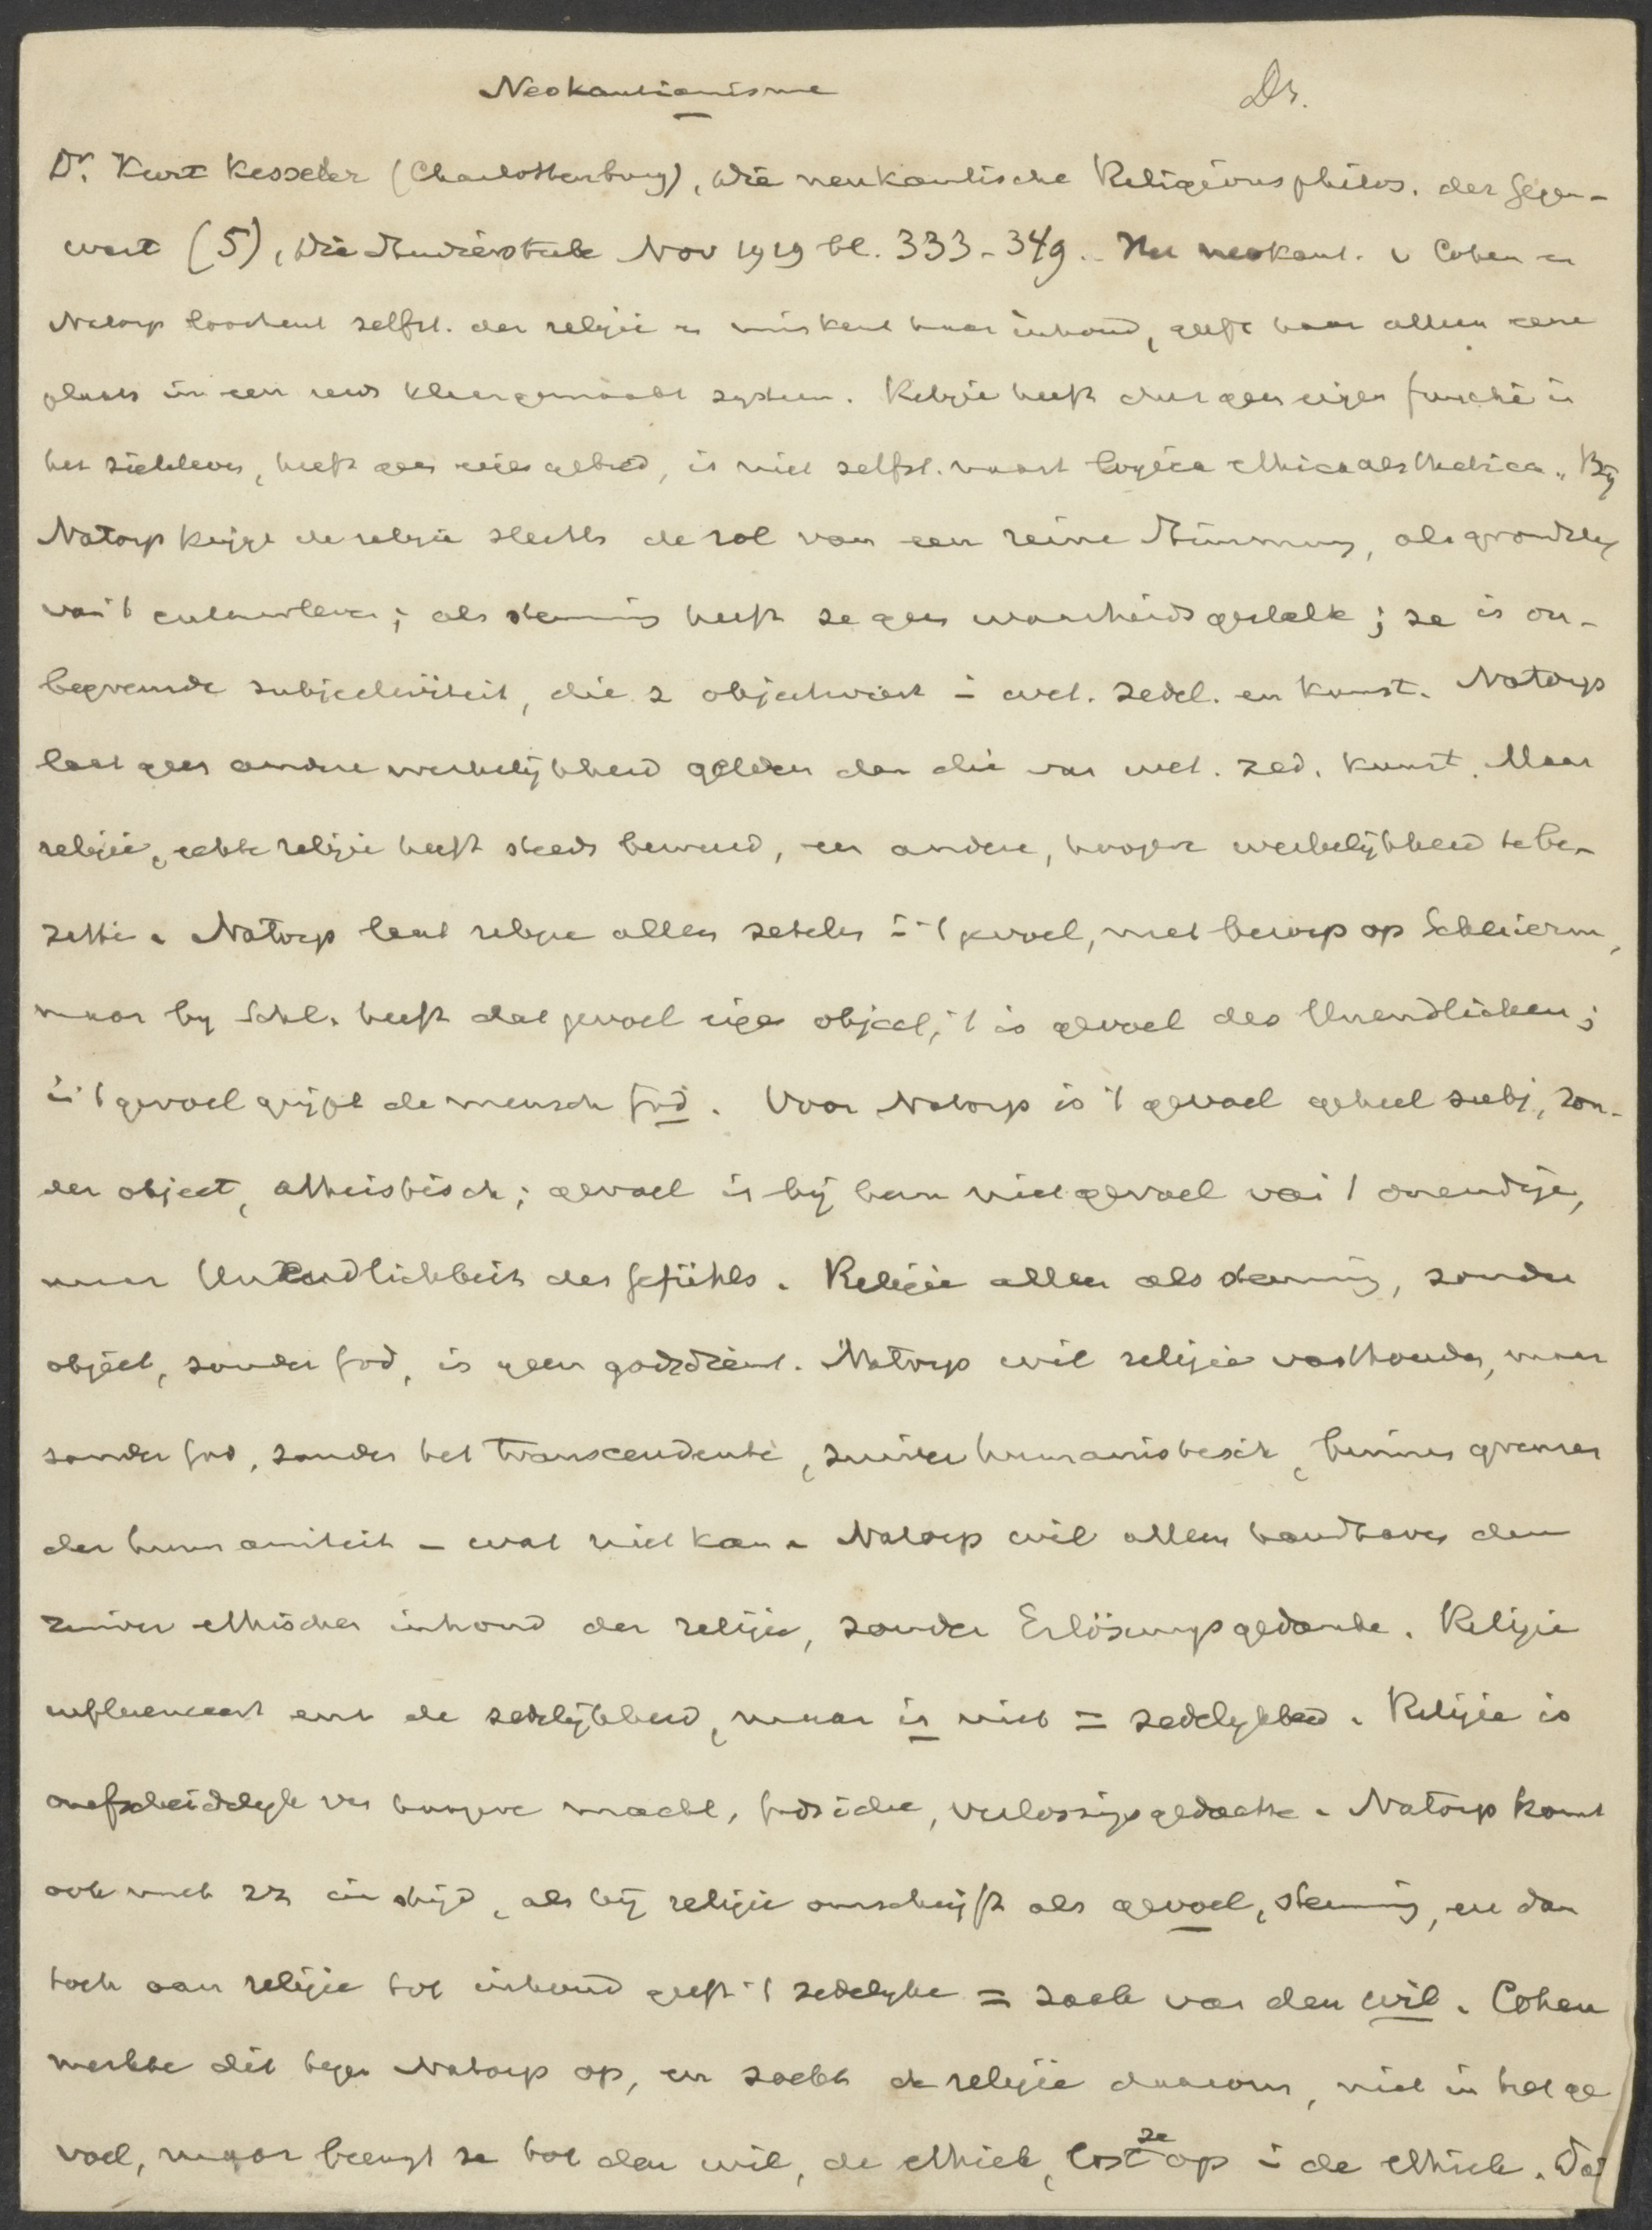 Neokantianisme
Dr.
Dr. Kurt Kesseler (Charlottenburg), Die neukantische Religionsphilos. der Gegen-
wart (5), Die Studierstube Nov 1919 bl. 333-349. Het neokant. v Cohen en
Natorp loochent zelfst. der religie en miskent haar inhoud, geeft haar alleen eene
plaats in een reeds klaargemaakt systeem. Religie heeft dus geen eigen functie in
het zieleleven, heeft geen eigen gebied, is niet zelfst. naast logica ethica aesthetica. By
Natorp krijgt de religie slechts de rol van een reine Stimmung, als grondslag
van 't cultuurleven; als stemming heeft ze geen waarheidsgehalte; ze is on-
begrensde subjectiviteit, die z objectiveert in wet. zedel. en kunst. Natorp
laat geen andere werkelijkheid gelden dan die van wet. zed. kunst. Maar
religie, echte religie heeft steeds beweerd, een andere, hoogere werkelijkheid te be-
zitten. Natorp laat religie alleen zetelen in 't gevoel, met beroep op Schleierm,
maar by Schl. heeft dat gevoel eigen object; 't is gevoel des Unendlichen;
in 't gevoel grijpt de mensch God. Voor Natorp is 't gevoel geheel subj, zon-
der object, atheistisch; gevoel is bij hem niet gevoel van 't oneindige,
maar Unendlichkeit des Gefühls. Religie alleen als stemming, zonder
object, zonder God, is geen godsdienst. Natorp wil religie vasthouden, maar
zonder God, zonder het transcendente, zuiver humanistisch, binnen grenzen
der humaniteit - wat niet kan. Natorp wil alleen handhaven den
zuiver ethischen inhoud der religie, zonder Erlösungsgedanke. Religie
influenceert wel de zedelijkheid, maar is niet = zedelykheid. Religie is
onafscheidelyk van hoogere macht, Godsidee, verlossingsgedachte. Natorp komt
ook met zz in strijd, als hij religie omschrijft als gevoel, stemming, en dan
toch aan religie tot inhoud geeft 't zedelyke = zaak van den wil. Cohen
merkte dit tegen Natorp op, en zoekt de religie daarom, niet in het ge
voel, maar brengt ze tot den wil, de ethiek, lost ze op in de ethiek. Dat